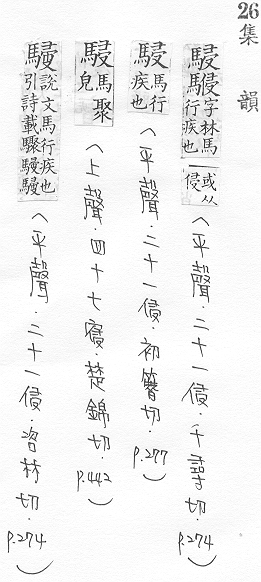 26
集韻
駸字林馬行疾也一或从侵(平聲.二十一侵.千尋切.p.274)
駸馬行疾也(平聲.二十一侵.初簪切.p.277)
駸馬聚皃(上聲.四十七寑.楚錦切.p.442)
駸說文馬行疾也引詩載驟駸駸(平聲.二十一侵.咨林切.p.274)